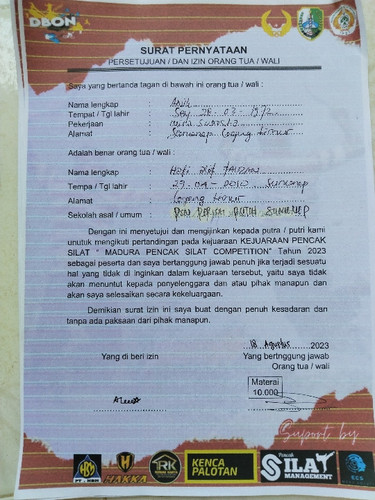 DBON
SURAT PERNYATAAN
PERSETUJUAN / DAN IZIN ORANG TUA / WALI
Saya yang bertanda tagan di bawah ini orang tua / wali :
Nama lengkap :
Tempat / Tgl lahir : 28 - 03 -
Pekerjaan :
Alamat :
Adalah benar orang tua / wali :
Nama lengkap :
Tempa / Tgl lahir : 29 - 04 - 2010
Alamat :
Sekolah asal / umum :
Dengan ini menyetujui dan mengijinkan kepada putra / putri kami
unutuk mengikuti pertandingan pada kejuaraan KEJUARAAN PENCAK
SILAT " MADURA PENCAK SILAT COMPETITION" Tahun 2023
sebagai peserta dan saya bertanggung jawab penuh jika terjadi sesuatu
hal yang tidak di inginkan dalam kejuaraan tersebut, yaitu saya tidak
akan menuntut kepada penyelenggara dan atau pihak manapun dan
akan saya selesaikan secara kekeluargaan.
Demikian surat izin ini saya buat dengan penuh kesadaran dan
tanpa ada paksaan dari pihak manapun.
18 Agustus 2023
Yang di beri izin
Yang bertnggung jawab
Orang tua / wali
Materai
10.000
Suport by
PT HBM
HAKKA
RK
KENCA
PALOTAN
Pencak
SILAT
MANAGEMENT